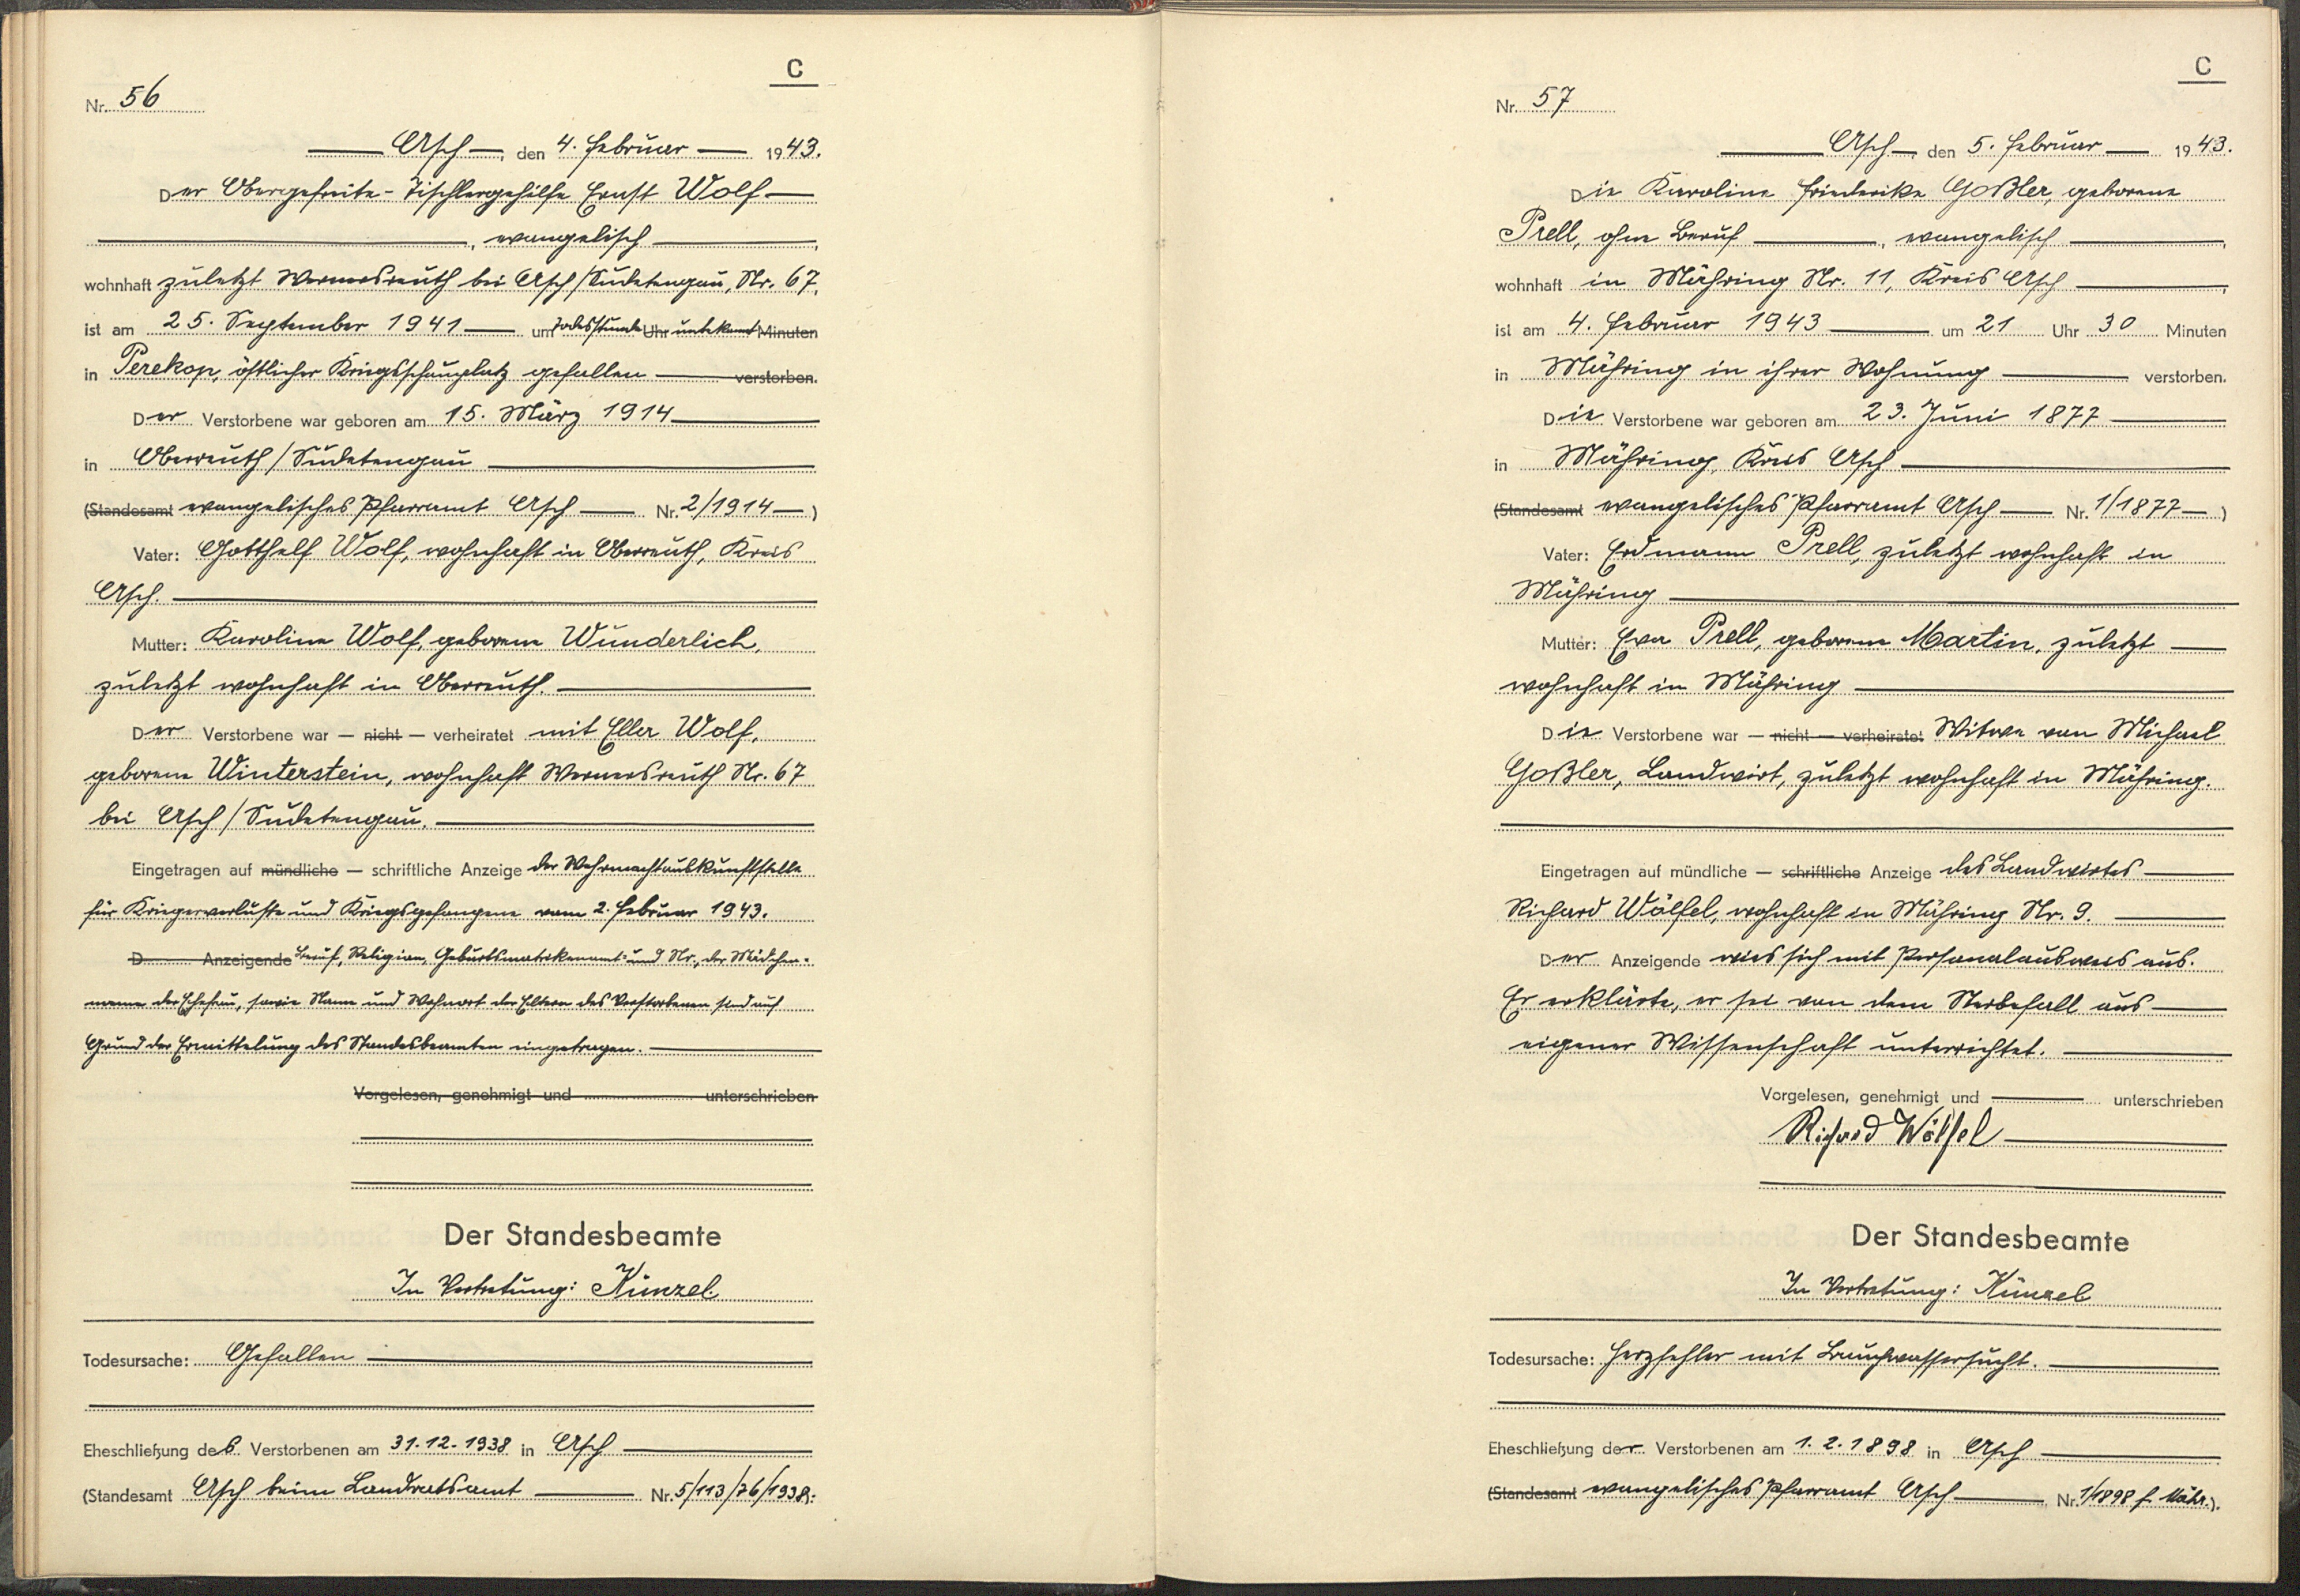 C
Nr. 56
Asch, den 4. Februar 1943.
Der Obergefreite - Tischlergehilfe Ernst Wolf
, evangelisch ,
wohnhaft zuletzt Wernersreuth bei Asch/Sudetengau, Nr. 67,
ist am 25. September 1941 um Todesstunde Uhr unbekannt Minuten
in Perekop, östlicher Kriegsschauplatz gefallen verstorben.
Der Verstorbene war geboren am 15. März 1914
in Oberreuth/Sudetengau
(Standesamt evangelisches Pfarramt Asch Nr. 2/1914)
Vater: Gotthelf Wolf, wohnhaft in Oberreuth, Kreis
Asch.
Mutter: Karoline Wolf, geborene Wunderlich,
zuletzt wohnhaft in Oberreuth.
Der Verstorbene war — nicht — verheiratet mit Ella Wolf,
geborene Winterstein, wohnhaft Wernersreuth Nr. 67
bei Asch/Sudetengau.
Eingetragen auf mündliche — schriftliche Anzeige der Wehrmachtauskunftstelle
für Kriegerverluste und Kriegsgefangene vom 2. Februar 1943.
D Anzeigende Beruf, Religion, Geburtsmatrikenamt- und Nr., der Mädchen-
name der Ehefrau, sowie Name und Wohnort der Eltern des Verstorbenen sind auf
Grund der Ermittelung des Standesbeamten eingetragen.
Vorgelesen, genehmigt und unterschrieben
Der Standesbeamte
In Vertretung: Künzel.
Todesursache: Gefallen
Eheschließung des Verstorbenen am 31.12.1938 in Asch
(Standesamt Asch beim Landratsamt Nr. 5/113/76/1938).
C
Nr. 57
Asch, den 5. Februar 1943.
Die Karoline Friederike Goßler, geborene
Prell, ohne Beruf , evangelisch ,
wohnhaft in Mähring Nr. 11, Kreis Asch ,
ist am 4. Februar 1943 um 21 Uhr 30 Minuten
in Mähring in ihrer Wohnung verstorben.
Die Verstorbene war geboren am 23. Juni 1877
in Mähring, Kreis Asch
(Standesamt evangelisches Pfarramt Asch Nr. 1/1877)
Vater: Erdmann Prell, zuletzt wohnhaft in
Mähring
Mutter: Eva Prell, geborene Martin, zuletzt
wohnhaft in Mähring
Die Verstorbene war — nicht — verheiratet Witwe von Michael
Goßler, Landwirt, zuletzt wohnhaft in Mähring.
Eingetragen auf mündliche — schriftliche Anzeige des Landwirtes
Richard Wölfel, wohnhaft in Mähring Nr. 9.
Der Anzeigende wies sich mit Personalausweis aus.
Er erklärte, er sei von dem Sterbefall aus
eigener Wissenschaft unterrichtet.
Vorgelesen, genehmigt und unterschrieben
Richard Wölfel
Der Standesbeamte
In Vertretung: Künzel
Todesursache: Herzfehler mit Bauchwassersucht.
Eheschließung der Verstorbenen am 1.2.1898 in Asch
(Standesamt evangelisches Pfarramt Asch Nr. 1/1898 f. Mähr.).